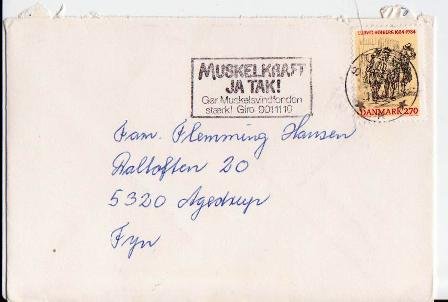 LUDVIG HOLBERG 1684-1984
DANMARK 270
MUSKELKRAFT
JA TAK!
Gør Muskelsvindfonden
stærk! Giro 9011110
Fam. Flemming Hansen
Raltoften 20
5320 Agedrup
Fyn